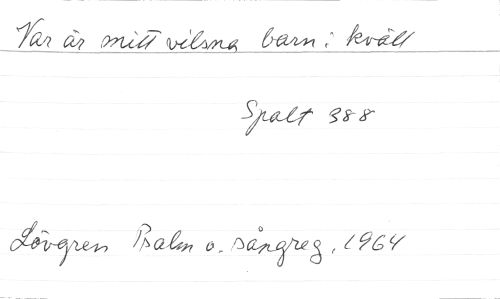 Var är mitt vilsna barn i kväll
Spalt 388
Lövgren Psalm o. sångreg. 1964